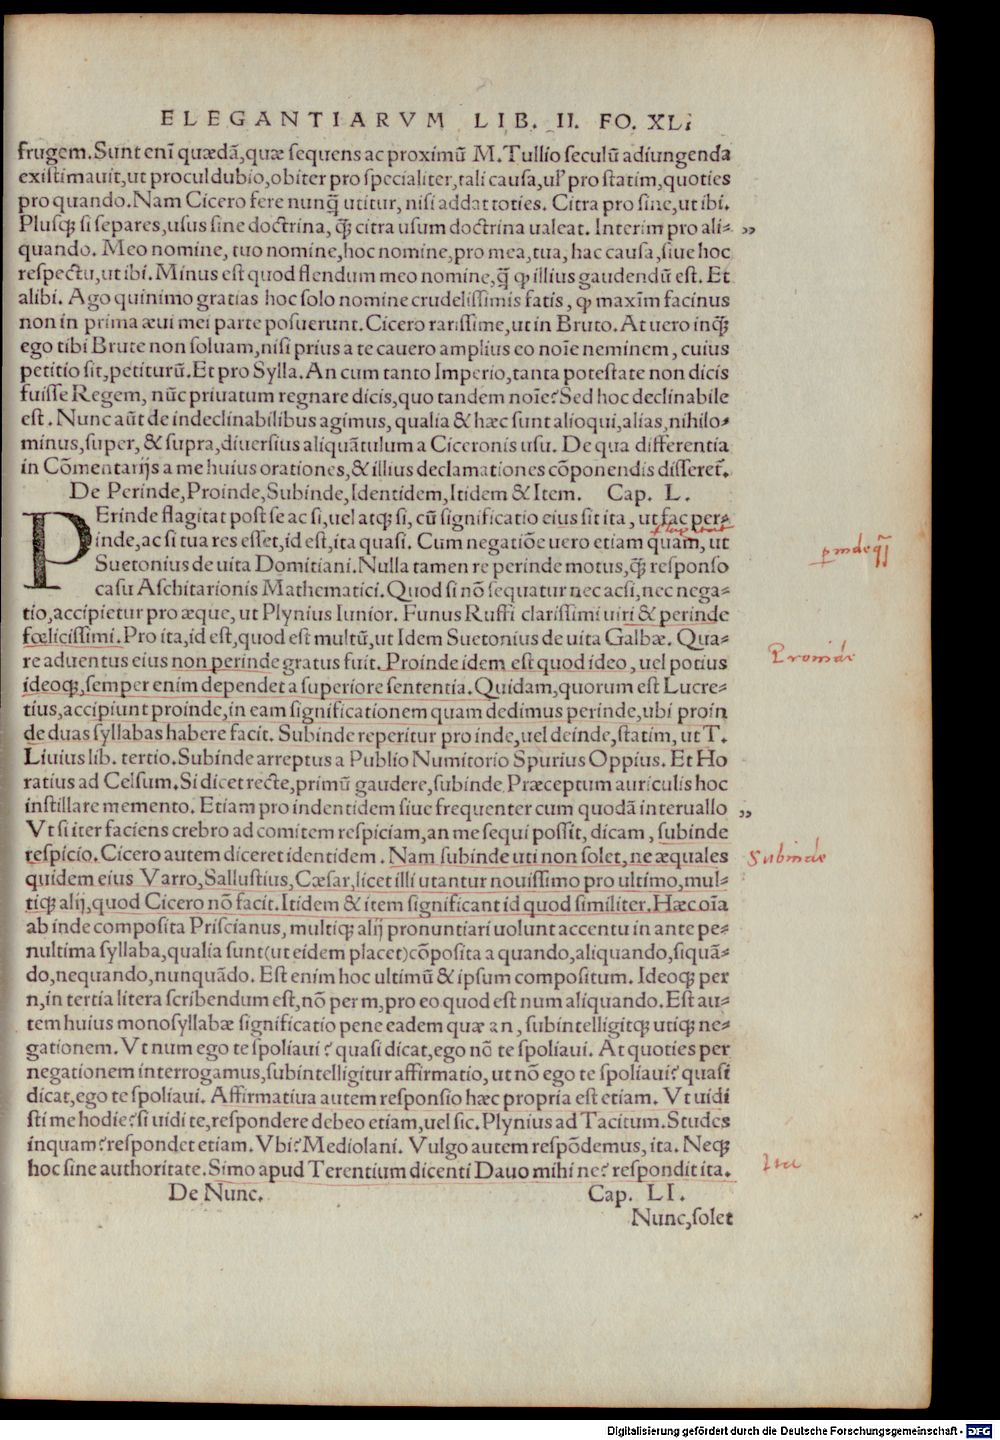 ELEGANTIARVM LIB. II. FO. XLi
frugem. Sunt enī quædā, quæ sequens ac proximū M. Tullio seculū adiungenda
existimauit, ut procul dubio, obiter pro specialiter, tali causa, uł pro statim, quoties
pro quando. Nam Cicero fere nunq̃ utitur, nisi addat toties. Citra pro sine, ut ibi.
Plusq; si separes, usus sine doctrina, q̃ citra usum doctrina ualeat. Interim pro ali⸗ „
quando. Meo nomine, tuo nomine, hoc nomine, pro mea, tua, hac causa, siue hoc
respectu, ut ibi. Minus est quod flendum meo nomine, q̃ ꝙ illius gaudendū est. Et
alibi. Ago quinimo gratias hoc solo nomine crudelissimis fatis, ꝙ maxīm facinus
non in prima æui mei parte posuerunt. Cicero rarissime, ut in Bruto. At uero inq̃
ego tibi Brute non soluam, nisi prius a te cauero amplius eo noīe neminem, cuius
petitio sit, petiturū. Et pro Sylla. An cum tanto Imperio, tanta potestate non dicis
fuisse Regem, nūc priuatum regnare dicis, quo tandem noīe? Sed hoc declinabile
est. Nunc aūt de indeclinabilibus agimus, qualia & hæc sunt alioqui, alias, nihilo⸗
minus, super, & supra, diuersius aliquātulum a Ciceronis usu. De qua differentia
in Cōmentarijs a me huius orationes, & illius declamationes cōponendis disseret̃.
De Perinde, Proinde, Subinde, Identidem, Itidem & Item. Cap. L.
PErinde flagitat post se ac si, uel atq; si, cū significatio eius sit ita, ut fac per⸗
inde, ac si tua res esset, id est, ita quasi. Cum negatiōe uero etiam quam, ut
Suetonius de uita Domitiani. Nulla tamen re perinde motus, q̃ responso
casu Aschitarionis Mathematici. Quod si nō sequatur nec acsi, nec nega⸗
tio, accipietur pro æque, ut Plynius Iunior. Funus Ruffi clarissimi uiri & perinde
fœlicissimi. Pro ita, id est, quod est multū, ut Idem Suetonius de uita Galbæ. Qua⸗
re aduentus eius non perinde gratus fuit. Proinde idem est quod ideo, uel potius
ideoq;, semper enim dependet a superiore sententia. Quidam, quorum est Lucre⸗
tius, accipiunt proinde, in eam significationem quam dedimus perinde, ubi proin
de duas syllabas habere facit. Subinde reperitur pro inde, uel deinde, statim, ut T.
Liuius lib. tertio. Subinde arreptus a Publio Numitorio Spurius Oppius. Et Ho
ratius ad Celsum. Si dicet recte, primū gaudere, subinde Præceptum auriculis hoc
instillare memento. Etiam pro indentidem siue frequenter cum quodā interuallo „
Vt si iter faciens crebro ad comitem respiciam, an me sequi possit, dicam, subinde
respicio. Cicero autem diceret identidem. Nam subinde uti non solet, ne æquales
quidem eius Varro, Sallustius, Cæsar, licet illi utantur nouissimo pro ultimo, mul⸗
tiq; alij, quod Cicero nō facit. Itidem & item significant id quod similiter. Hæc oīa
ab inde composita Priscianus, multiq; alij pronuntiari uolunt accentu in ante pe⸗
nultima syllaba, qualia sunt (ut eidem placet) cōposita a quando, aliquando, siquā⸗
do, nequando, nunquādo. Est enim hoc ultimū & ipsum compositum. Ideoq; per
n, in tertia litera scribendum est, nō per m, pro eo quod est num aliquando. Est au⸗
tem huius monosyllabæ significatio pene eadem quæ an, subintelligitq; utiq; ne⸗
gationem. Vt num ego te spoliaui? quasi dicat, ego nō te spoliaui. At quoties per
negationem interrogamus, subintelligitur affirmatio, ut nō ego te spoliaui? quasi
dicat, ego te spoliaui. Affirmatiua autem responsio hæc propria est etiam. Vt uidi
sti me hodie? si uidi te, respondere debeo etiam, uel sic. Plynius ad Tacitum. Studes
inquam? respondet etiam. Vbi? Mediolani. Vulgo autem respōdemus, ita. Neq;
hoc sine authoritate. Simo apud Terentium dicenti Dauo mihi ne? respondit ita.
De Nunc. Cap. LI.
Nunc, solet
Proinde
Subinde
Ita
Digitalisierung gefördert durch die Deutsche Forschungsgemeinschaft - DFG